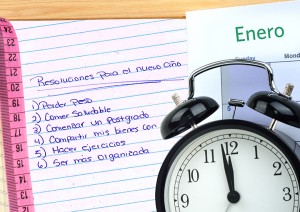 Enero
Monday
Resoluciones para el nuevo año
1) Perder peso
2) Comer saludable
3) Comenzar un Postgrado
4) Compartir mis bienes con
5) Hacer ejercicios
6) Ser mas organizada
12
11
10
9
1
2
3
13
14
15
16
17
18
19
20